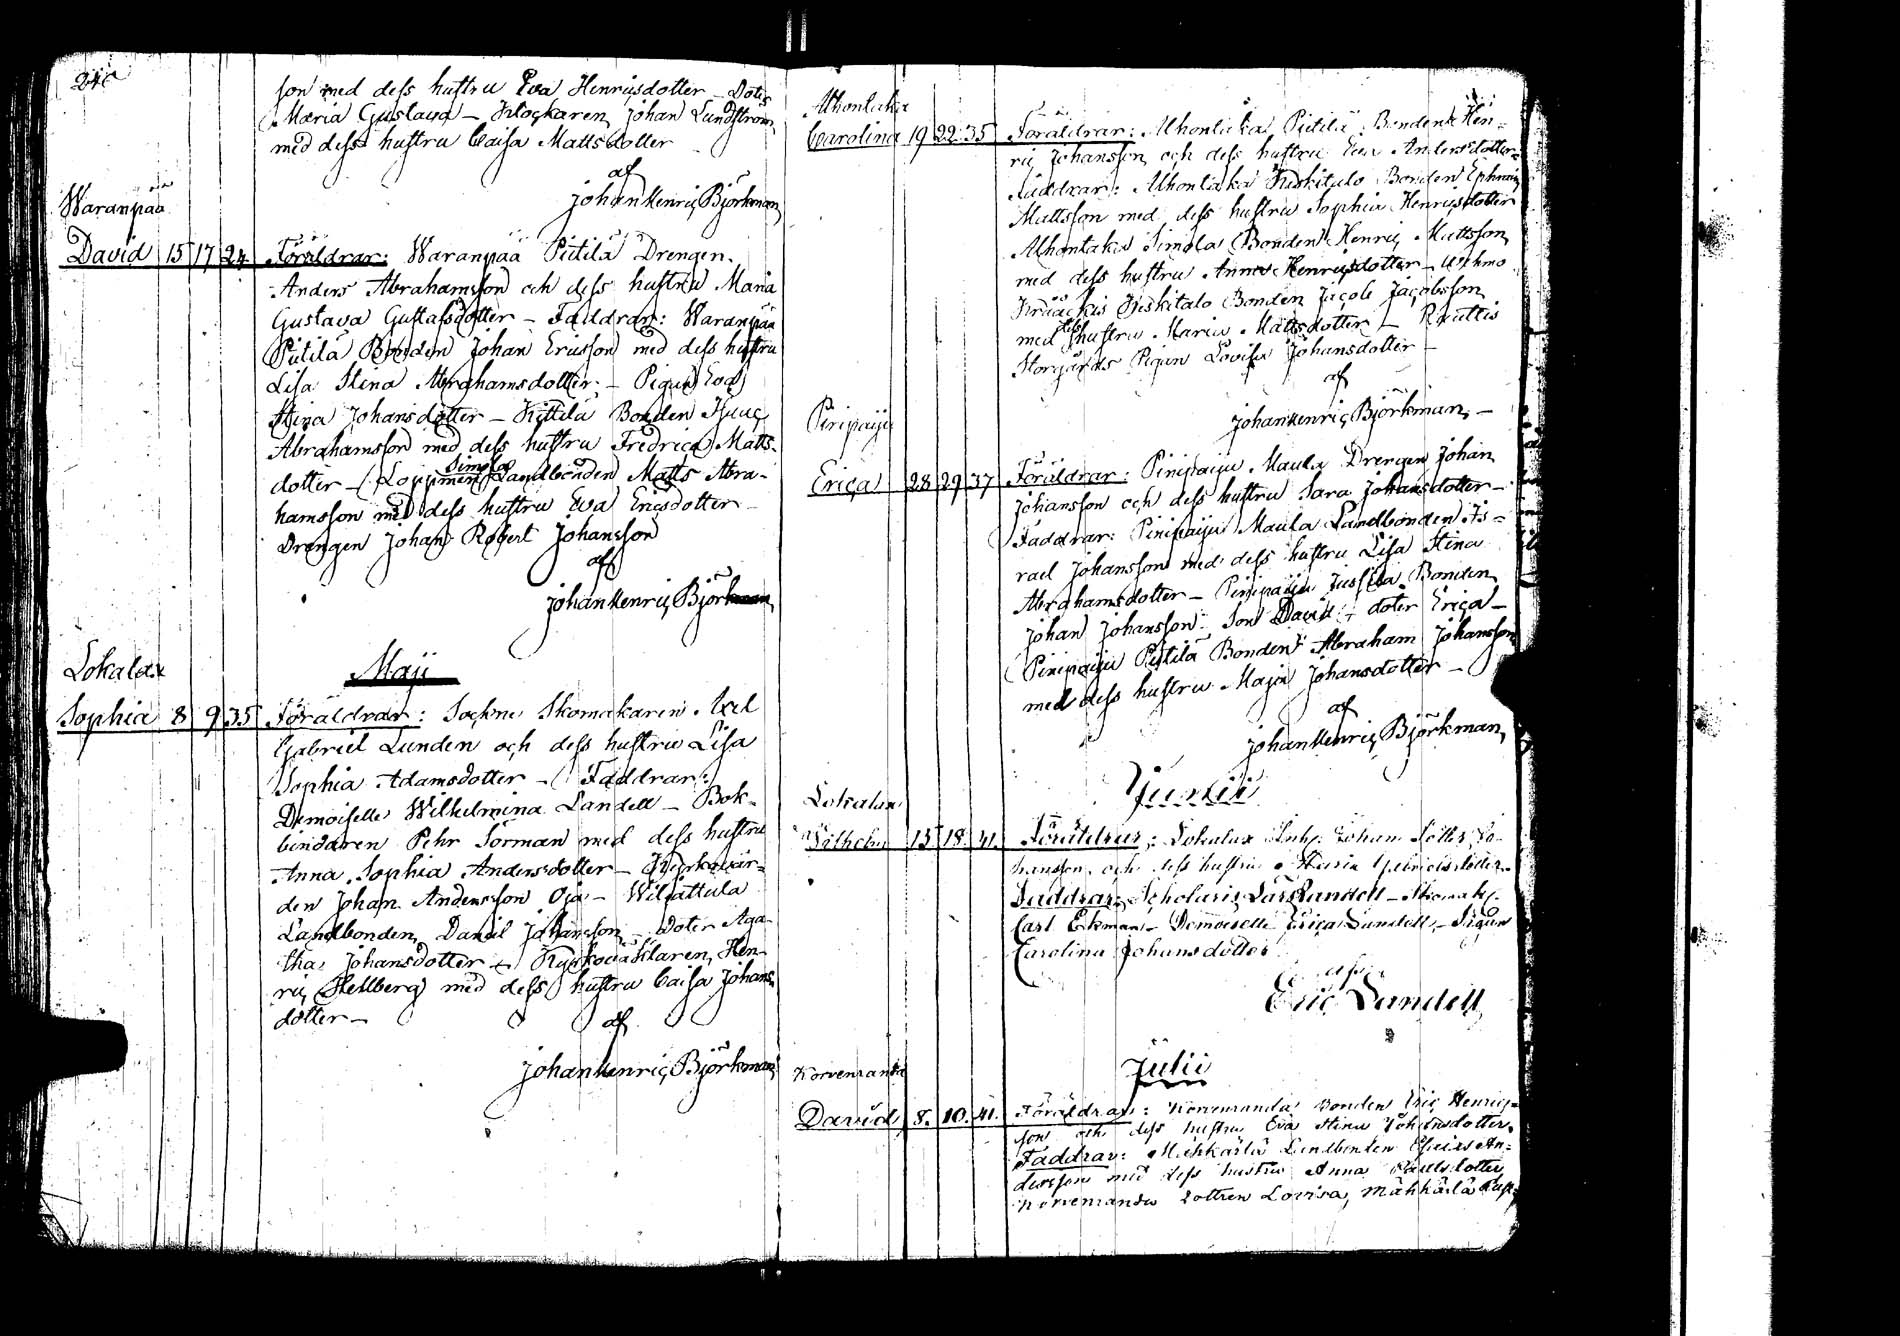 240
son med dess hustru Eva Henricsdotter – Doter
Maria Gustava – Klockaren Johan Lundström
med dess hustru Caisa Mattsdotter
af
Johan Henric Björkman
Waranpää
David 15 17 24 Föräldrar: Waranpää Pietilä Drengen
Anders Abrahamsson och dess hustru Maria
Gustava Gustafsdotter – Faddrar: Waranpää
Pietilä Bonden Johan Ericsson med dess hustru
Lisa Stina Abrahamsdotter – Pigan Eva
Stina Johansdotter – Kittilä Bonden Isaac
Abrahamsson med dess hustru Fredrica Matts-
dotter – Loppmen Simola Landbonden Matts Abra-
hamsson med dess hustru Eva Ericsdotter –
Drengen Johan Robert Johansson
af
Johan Henric Björkman
Maji
Lokalax
Sophia 8 9 35 Föräldrar: Sockne Skomakaren Axel
Gabriel Lunden och dess hustru Lisa
Sophia Adamsdotter – Faddrar:
Demoiselle Wilhelmina Landell – Bok-
bindaren Pehr Sörman med dess hustru
Anna Sophia Andersdotter – Kyrkovär-
den Johan Andersson Oja – Wiljattula
Landbonden Daniel Johansson – Doter Aga-
tha Johansdotter – Kyrkovaktaren Hen-
ric Hellberg med dess hustru Caisa Johans-
dotter –
af
Johan Henric Björkman
Alhontaka
Carolina 19 22 35 Föräldrar: Alhontaka Pietilä Bonden Hen-
ric Johansson och dess hustru Eva Andersdotter –
Faddrar: Alhontaka Kiskitalo Bonden Ephraim
Mattsson med dess hustru Sophia Henricsdotter
Alhontaka Simola Bonden Henric Mattsson
med dess hustru Anna Henricsdotter –
Kiskitalo Bonden Jacob Jacobsson
med dess hustru Maria Mattsdotter – Rauttis
Storgårds Pigan Lovisa Johansdotter –
af
Johan Henric Björkman –
Pinipaiju
Erica 28 29 37 Föräldrar: Pinipaiju Maula Drengen Johan
Johansson och dess hustru Sara Johansdotter –
Faddrar: Pinipaiju Maula Landbonden Is-
rael Johansson med dess hustru Lisa Stina
Abrahamsdotter – Pinipaiju Jussila Bonden
Johan Johansson Son David – doter Erica –
Pinipaiju Pietilä Bonden Abraham Johansson
med dess hustru Maja Johansdotter –
af
Johan Henric Björkman
Junii
Lokalax
Wilhelm 15 18 41 Föräldrar: Lokalax Inhy. Johan Jo-
hansson och dess hustru Maria Gabrielsdotter –
Faddrar: Scholaris Lars Landell –
Carl Ekman – Demoiselle Erica Landell – Pigan
Carolina Johansdotter
af
Eric Landell
Julii
Korvenranda
David 8. 10. 41. Föräldrar: Korvenranda Bonden Eric Henrics-
son och dess hustru Eva Stina Johansdotter.
Faddrar: Mahkarla Landbonden Esaias An-
dersson med dess hustru Anna Paulsdotter
Korvenranda Dottren Lovisa, Mahkarla